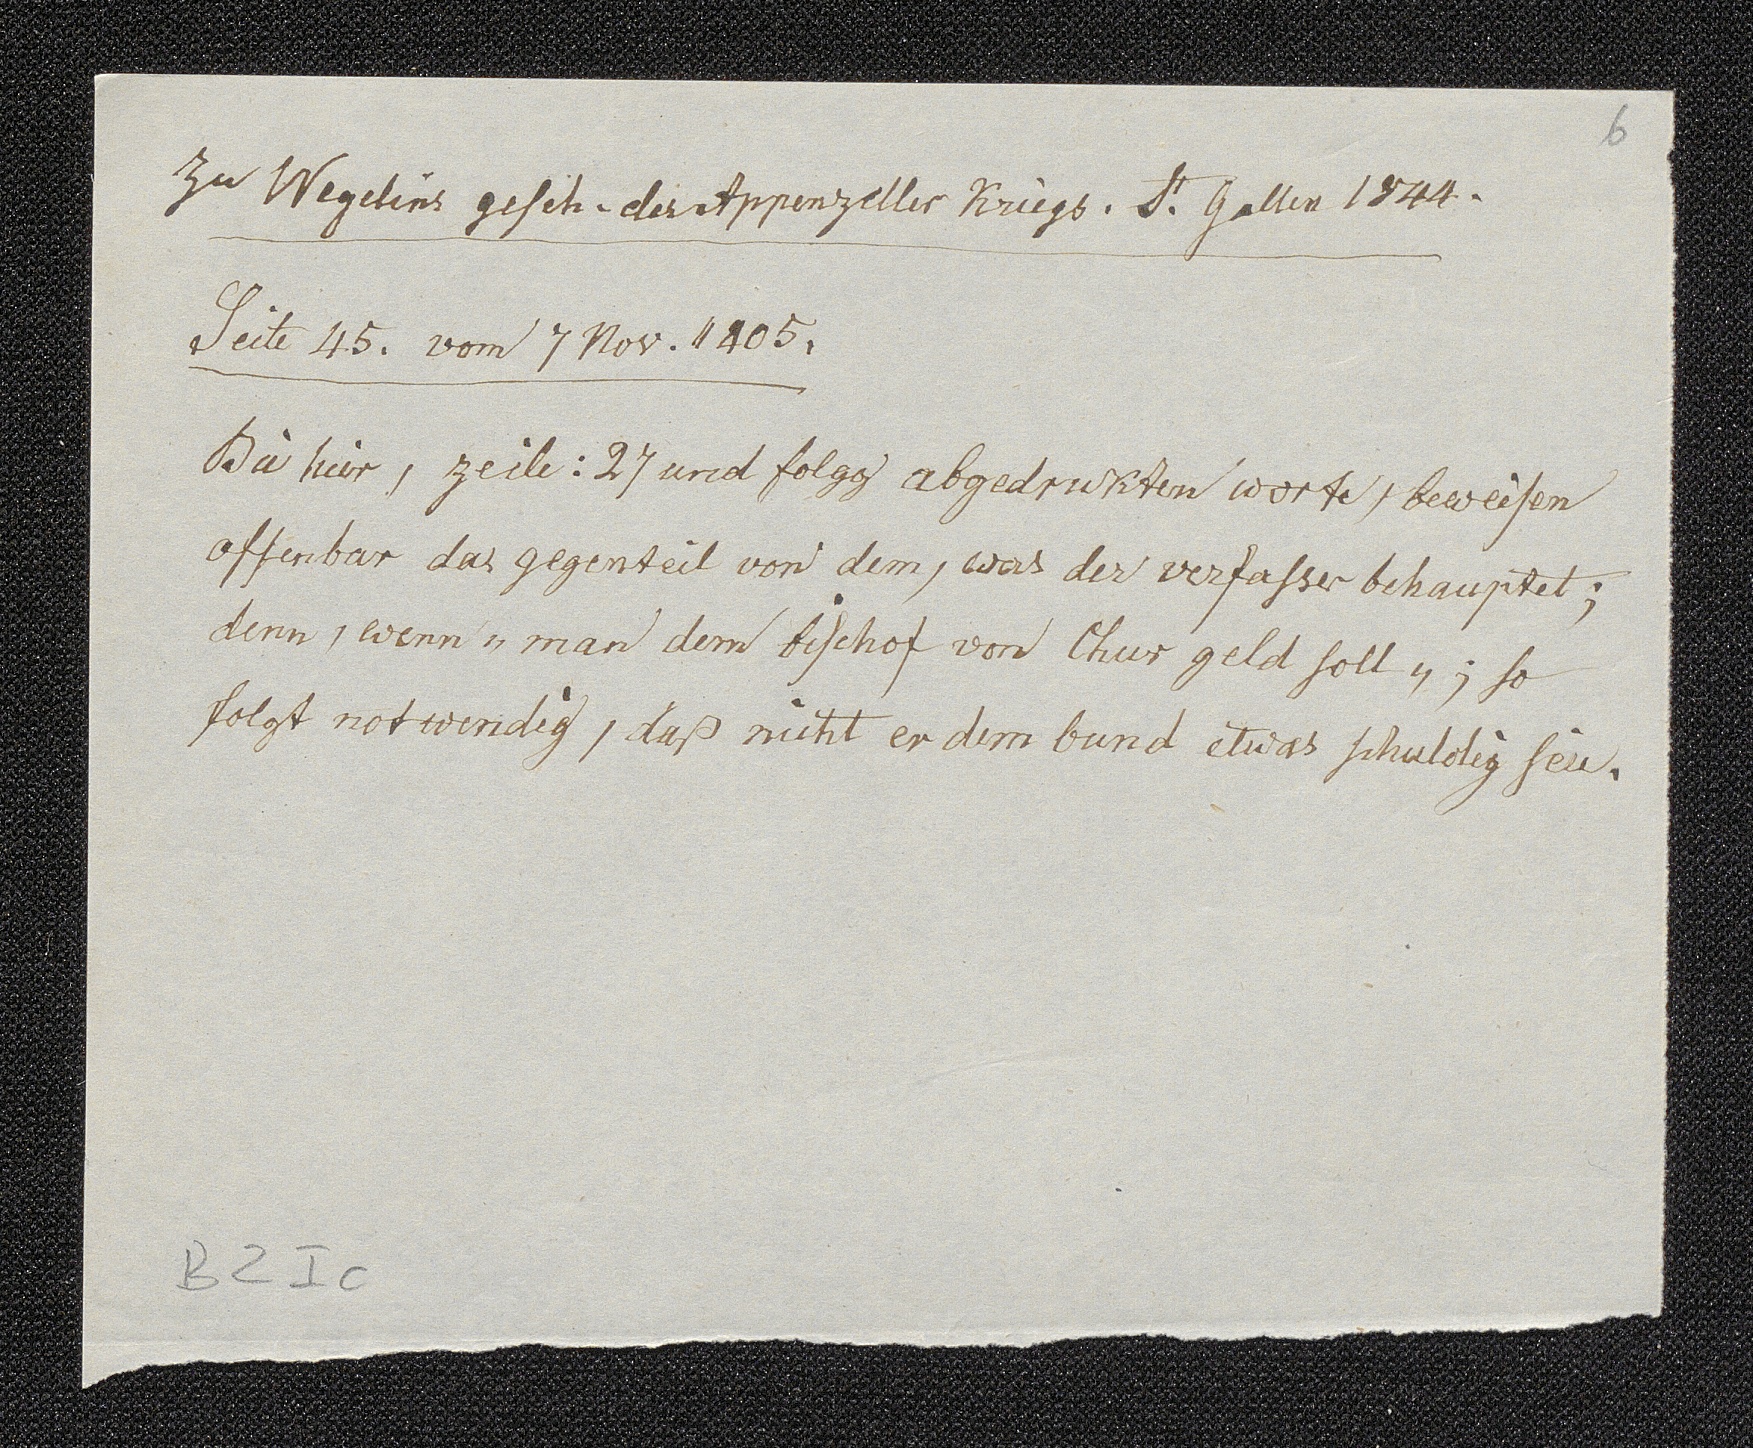 6
Zu Wegelins gesch. des Appenzeller Kriegs. St. Gallen 1844.
Seite 45. vom 7 Nov. 1405.
Die hier, zeile: 27 und folgg abgedrukten worte, beweisen
offenbar das gegenteil von dem, was der verfasser behauptet;
denn, wenn „man dem bischof von Chur geld soll„; so
folgt notwendig, daß nicht er dem bund etwas schuldig seie.
B 2 I c